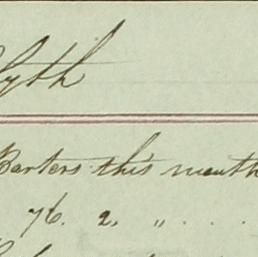 lyth
Barters this month
76. 2, " . . .